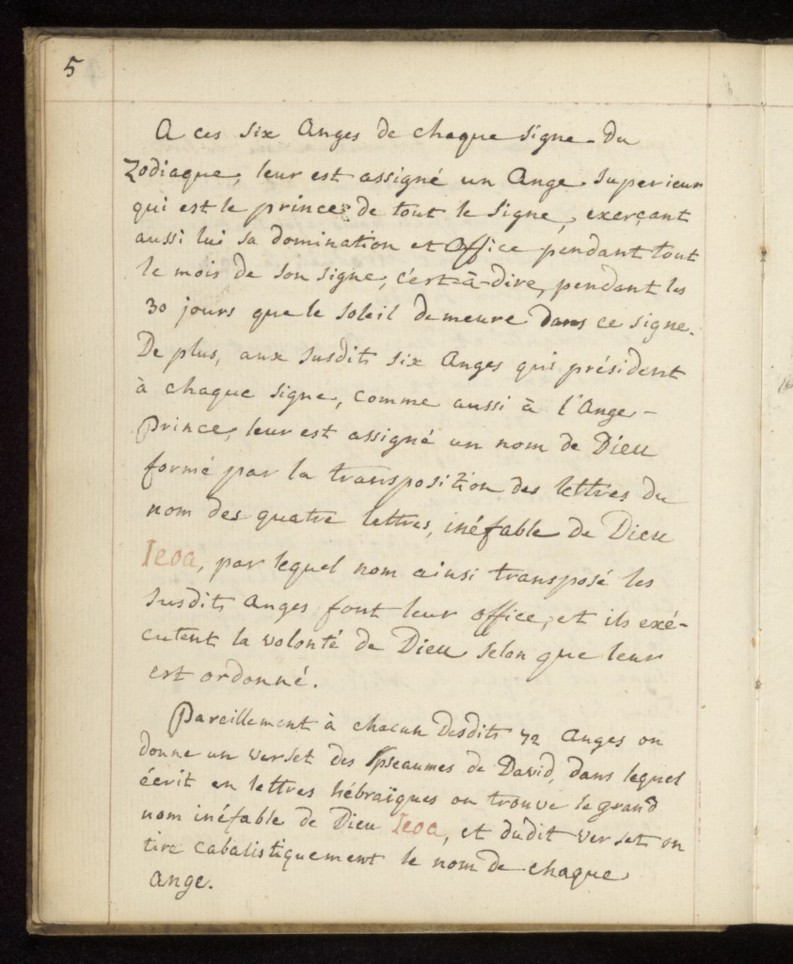 5
A ces six Anges de chaque signe du
Zodiaque, leur est assigné un Ange Superieur
qui est le prince de tout le Signe, exerçant
aussi lui sa domination et Office pendant tout
le mois de son signe, c'est-à-dire, pendant les
30 jours que le Soleil demeure dans ce signe.
De plus, aux susdits six Anges qui président
à chaque signe, comme aussi à l'Ange-
Prince, leur est assigné un nom de Dieu
formé par la transposition des lettres du
nom des quatre lettres, inéfable de Dieu
Ieoa, par lequel nom ainsi transposé les
susdits Anges font leur office, et ils exé-
cutent la volonté de Dieu selon que leur
est ordonné.
Pareillement à chacun desdits 72 Anges on
donne un verset des Pseaumes de David, dans lequel
écrit en lettres hébraïques on trouve le grand
nom inéfable de Dieu Ieoa, et dudit verset on
tire cabalistiquement le nom de chaque
Ange.